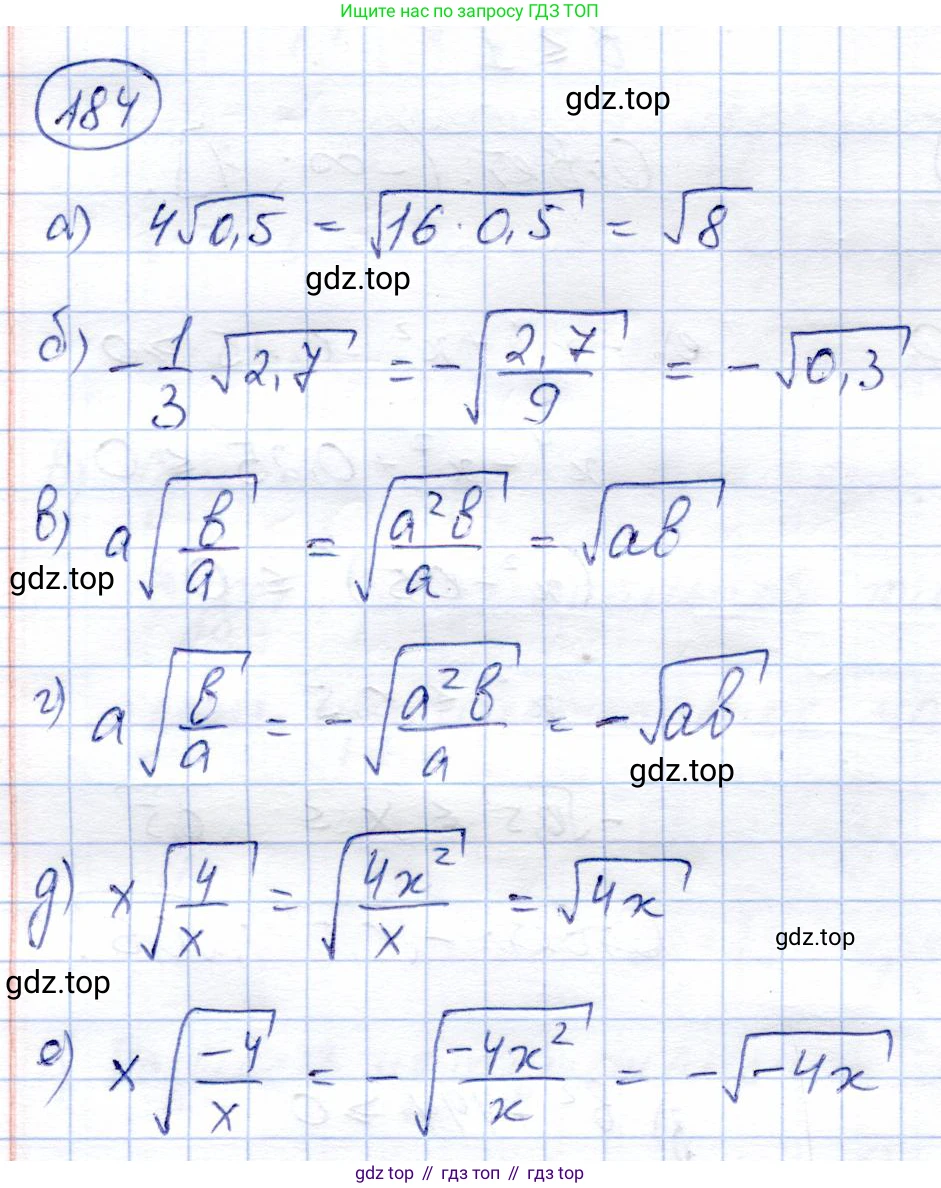 Ищите нас по запросу ГДЗ ТОП
184
gdz.top
а) 4√0,5 = √16 · 0,5 = √8
gdz.top
б) -1/3 √2,7 = -√2,7/9 = -√0,3
в) a√b/a = √a²b/a = √ab
gdz.top
г) a√b/a = -√a²b/a = -√ab
gdz.top
д) x√4/x = √4x²/x = √4x
gdz.top
gdz.top
е) x√-4/x = -√-4x²/x = -√-4x
gdz top // гдз топ // гдз top